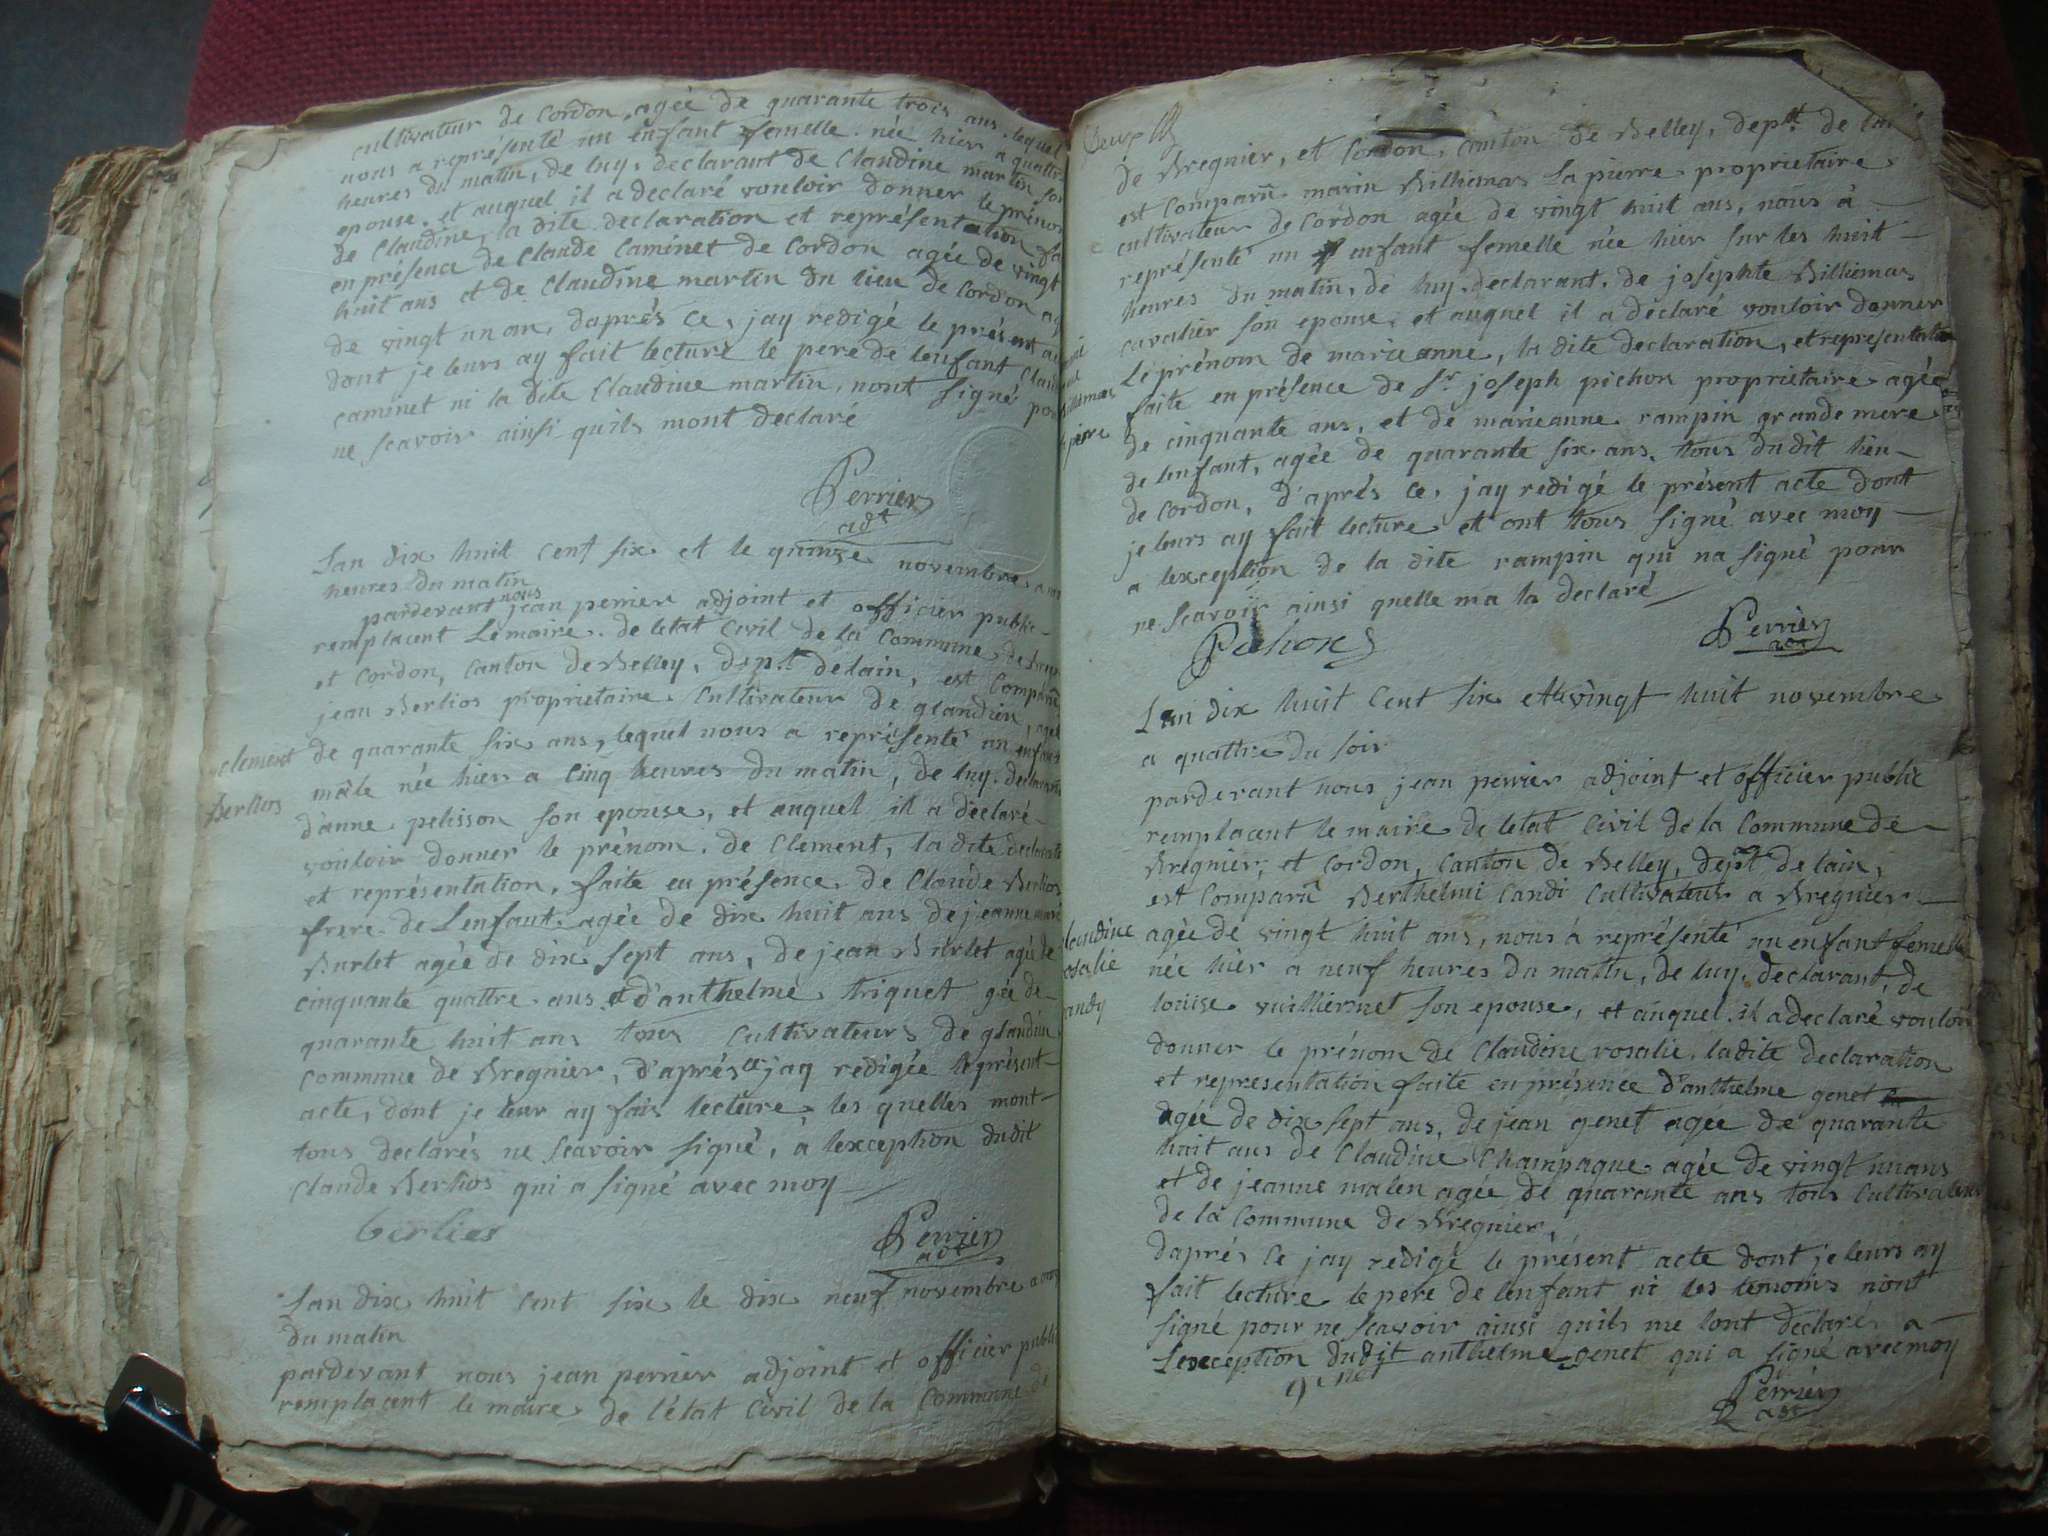 cultivateur de Cordon agée de quarante trois ans lequel
nous a représenté un enfant femelle née hier a quattre
heures du matin, de luy declarant de Claudine martin son
epouse et auquel il a declaré vouloir donner le prénom
de Claudine, la dite declaration et représentation
en présence de Claude Caminet de Cordon agée de vingt
huit ans et de Claudine martin du lieu de Cordon
de vingt un an, daprés ce, jay redigé le présent
dont je leurs ay fait lecture le pere de lenfant
caminet ni la dite Claudine martin, nont signé pour
ne scavoir ainsi quils mont declaré
Perrier
adt
Lan dix huit cent six et le quinze novembre
heures du matin
pardevant nous jean perrier adjoint et officier public
remplacent Lemaire de letat civil de la Commune de
et Cordon, Canton de Belley, dept delain, est Comparû
jean Berlios proprietaire Cultivateur de glandieu, agée
clement
de quarante six ans, lequel nous a représenté un enfant
Berlios
mâle née hier a cinq heures du matin, de luy declarant
d'anne pelisson son epouse, et auquel il a déclaré
vouloir donner le prénom de Clement, la dite
et représentation, faite en présence de Claude Berlios
frere de Lenfant agée de dix huit ans de jeanne
Burlet agée de dix sept ans, de jean Burlet agée de
cinquante quattre ans et d'anthelme triquet gée de
quarante huit ans tous Cultivateurs de glandieu
Commune de Bregnier, d'aprés ce jay redigée le présent
acte, dont je leur ay fais lecture les quelles mont
tous declarés ne scavoir signé, à lexception dudit
Claude Berlios qui a signé avec moy
berlios
Perrier
adt
Lan dix huit cent six le dix neuf novembre a
du matin
pardevant nous jean perrier adjoint et officier public
remplacent le maire de l'état civil de la Commune de
de Bregnier, et Cordon, Canton de Belley, dept de
est Comparû marin Billiemas Lapierre proprietaire
cultivateur de Cordon agée de vingt huit ans, nous à
représenté un enfant femelle née hier sur les huit
heures du matin, de luy declarant de joséphte Billiemas
cavalier son epouse, et auquel il a déclaré vouloir donner
Le prénom de marie anne, la dite declaration, et representation
faite en présence de Sr joseph pichon proprietaire agée
de cinquante ans, et de marieanne rampin grande mere
de lenfant, agée de quarante six ans, tous dudit lieu
de Cordon, d'aprés ce, jay redigé le présent acte dont
je leurs ay fait lecture et ont tous signé avec moy
a lexception de la dite rampin qui na signé pour
ne scavoir ainsi quelle ma la declaré
Pichon
Perrier
adt
Lan dix huit Cent six et le vingt huit novembre
a quattre du soir
parderant nous jean perrier adjoint et officier public
remplacent le maire de letat Civil de la Commune de
Bregnier, et Cordon, Canton de Belley, dept de lain,
est Comparû Berthelmi Candi Cultivateur a Bregnier
agée de vingt huit ans, nous à représenté un enfant femelle
née hier a neuf heures du matin, de luy declarant, de
louise vuilliermet son epouse, et auquel il a declaré vouloir
donner le prénom de Claudine rosalie, ladite declaration
et representation faite en présence d'anthelme genet
agée de dix sept ans, de jean genet agée de quarante
huit ans de Claudine Champagne agée de vingt un ans
et de jeanne malen agée de quarante ans tous Cultivateurs
de la Commune de Bregnier,
daprés ce jay redigé le présent acte dont je leurs ay
fait lecture le pere de lenfant ni les temoins nont
signé pour ne scavoir ainsi quils me lont declarés a
Lexception dudit anthelme genet qui a signé avec moy
genet
Perrier
adt